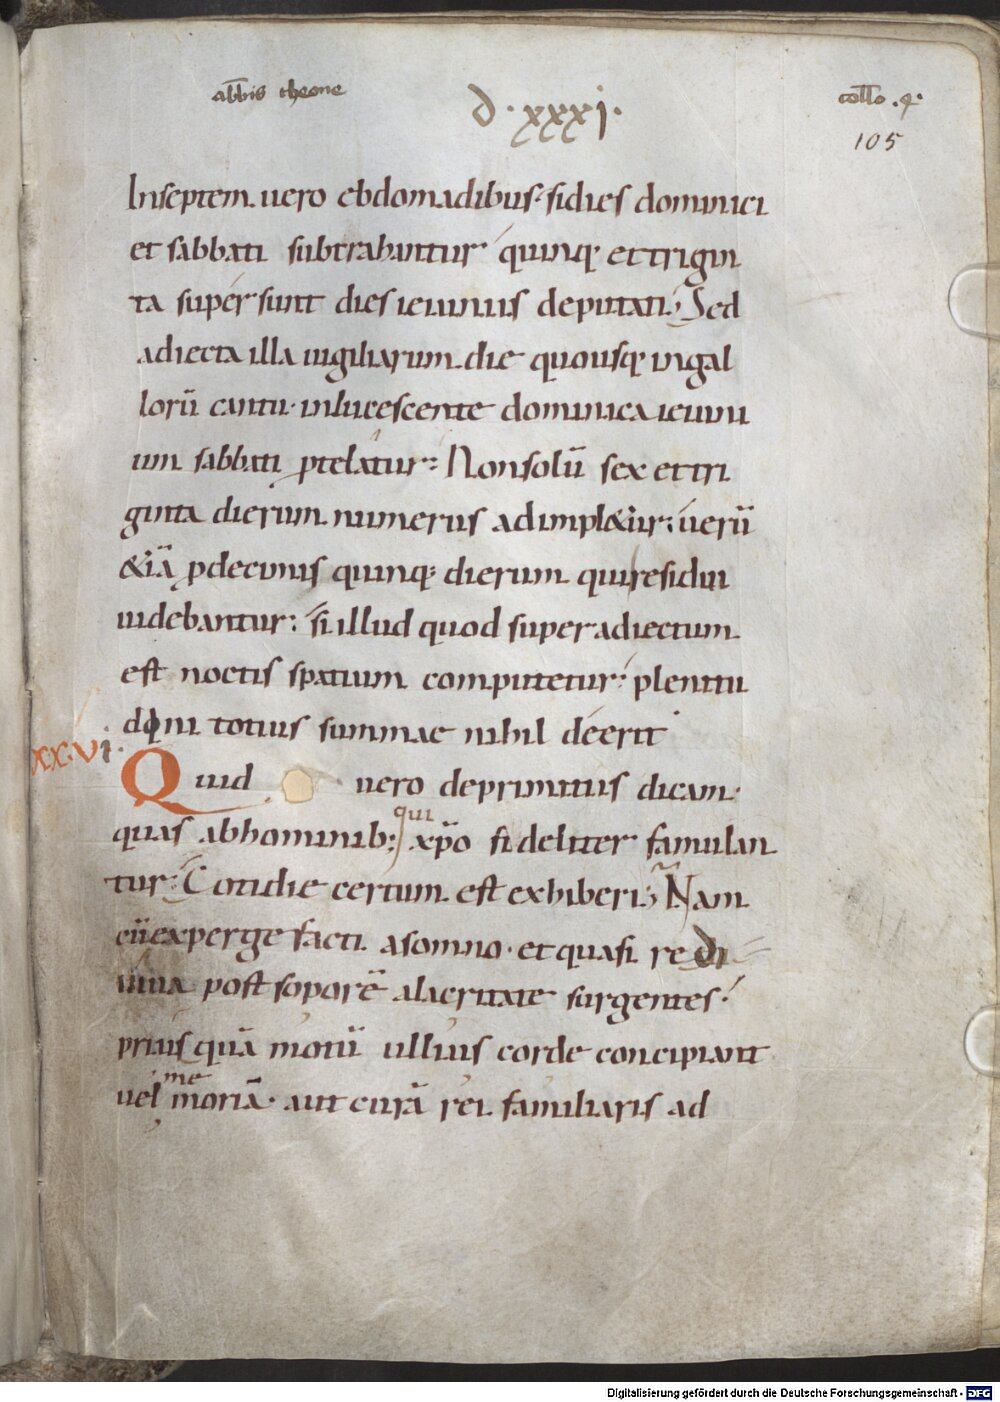 abb̅is theone
d·xxxi·
coll̅o .q̇·
105
Inseptem uero ebdomadibus· sidies dominici
et sabbati subtrahuntur quinq; ettrigin
ta supersunt dies ieiuniis deputati; Sed
adiecta illa uigiliarum die quousq; ingal
lorū cantu· inlucescente dominica ieiuni
um sabbati ptelatur; Nonsolū sex ettri
ginta dierum numerus adimpl&ur; uerū
&iā pdecimis quinq; dierum quiresidui
uidebantur; si illud quod superadiectum
est noctis spatium computetur; plenitu
dini totius summae nihil deerit
XXVI·
Quid uero deprimitiis dicam·
qui
quas abhominib; xp̄o fideliter famulan
tur; Cotidie certum est exhiberi; Nam
cūexpergefacti asomno· et quasi redi
uiua post soporē alacritate surgentes·
prius quā motū ullius corde concipiant
me
uel moriā· aut curā rei familiaris ad
Digitalisierung gefördert durch die Deutsche Forschungsgemeinschaft - DFG